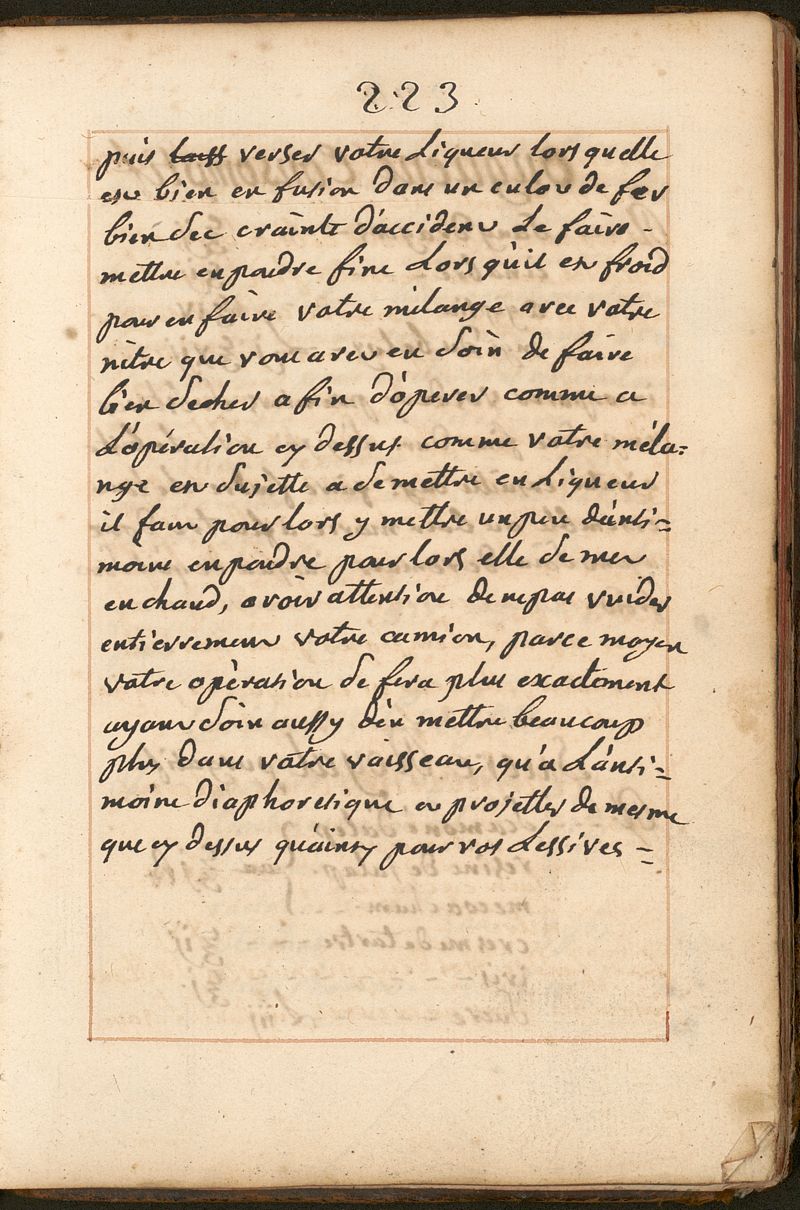 223
puis verser votre Liqueur lors quelle
est bien en fusion dans un culot de fer
bien sec crainte d'accident Le faire -
mettre en poudre fine Lors qu'il est froid
pour en faire votre mélange avec votre
nitre que vous avez eu soin de faire
bien secher afin d'óperer comme a
L'opération cy dessus comme votre méla=
nge est sujette a se mettre en Liqueur
il faut pour lors y mettre un peu d'anti=
moine en poudre pour lors elle se met
en chaud, avoir attention de ne pas vuider
entierrement votre camion, par ce moyen
votre opèration se fera plus exactement
ayant soin aussy d'en mettre beaucoup
plus dans votre vaisseau, qu'a L'anti=
moine diaphoretique et projetter de mesme
que cy dessus qu'ainsy pour vos Lessives =